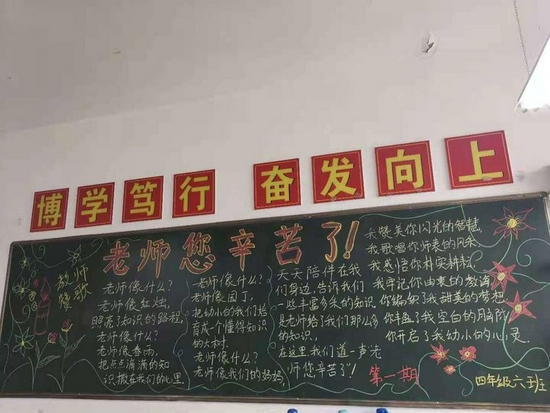 博学笃行 奋发向上
老师您辛苦了!
教师
赞歌
老师像什么?
老师像红烛,
照亮了知识的路程,
老师像什么?
老师像春雨,
把点点滴滴的知
识撒在我们的心里.
老师像什么?
老师像园丁,
把幼小的我们培
育成个懂得知识
的大树.
老师像什么?
老师像我们的妈妈,
天天陪伴在我
们身边,告诉我们
一些丰富多采的知识,
是老师给了我们那么多
的知识.
在这里我们道一声"老
师您辛苦了"!
我赞美你闪光的智慧,
我歌唱你师表的风采
我感悟你朴实耕耘,
我牢记你由衷的教诲
你编织了我甜美的梦想
你丰盈了我空白的头脑
你开启了我幼小的心灵.
第一期
四年级六班